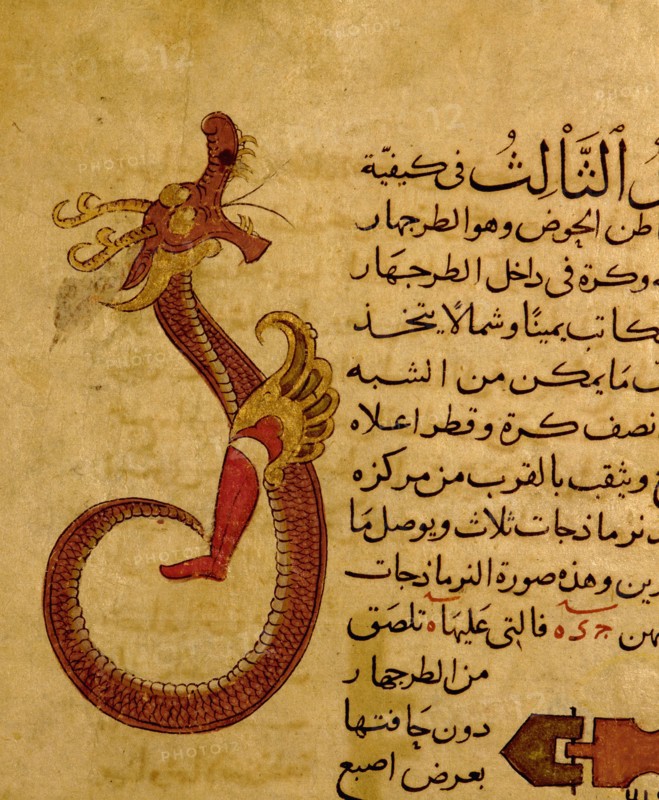 الثَّالِثُ في كيفيّة
طن الحوض وهو الطرجهار
وكرة في داخل الطرجهَار
كاتب يمينًا وشمالًا يتخذ
مَا يمكن من الشبه
نصف كرة وقطر اعلاه
ويثقب بالقرب من مركزه
نرماذجات ثلاث ويوصل مَا
وهذه صورة النرماذجات
فالتي عَليهَا ه تلصَق
من الطرجهار
دون حافتها
بعرض اصبع
PHOTO12